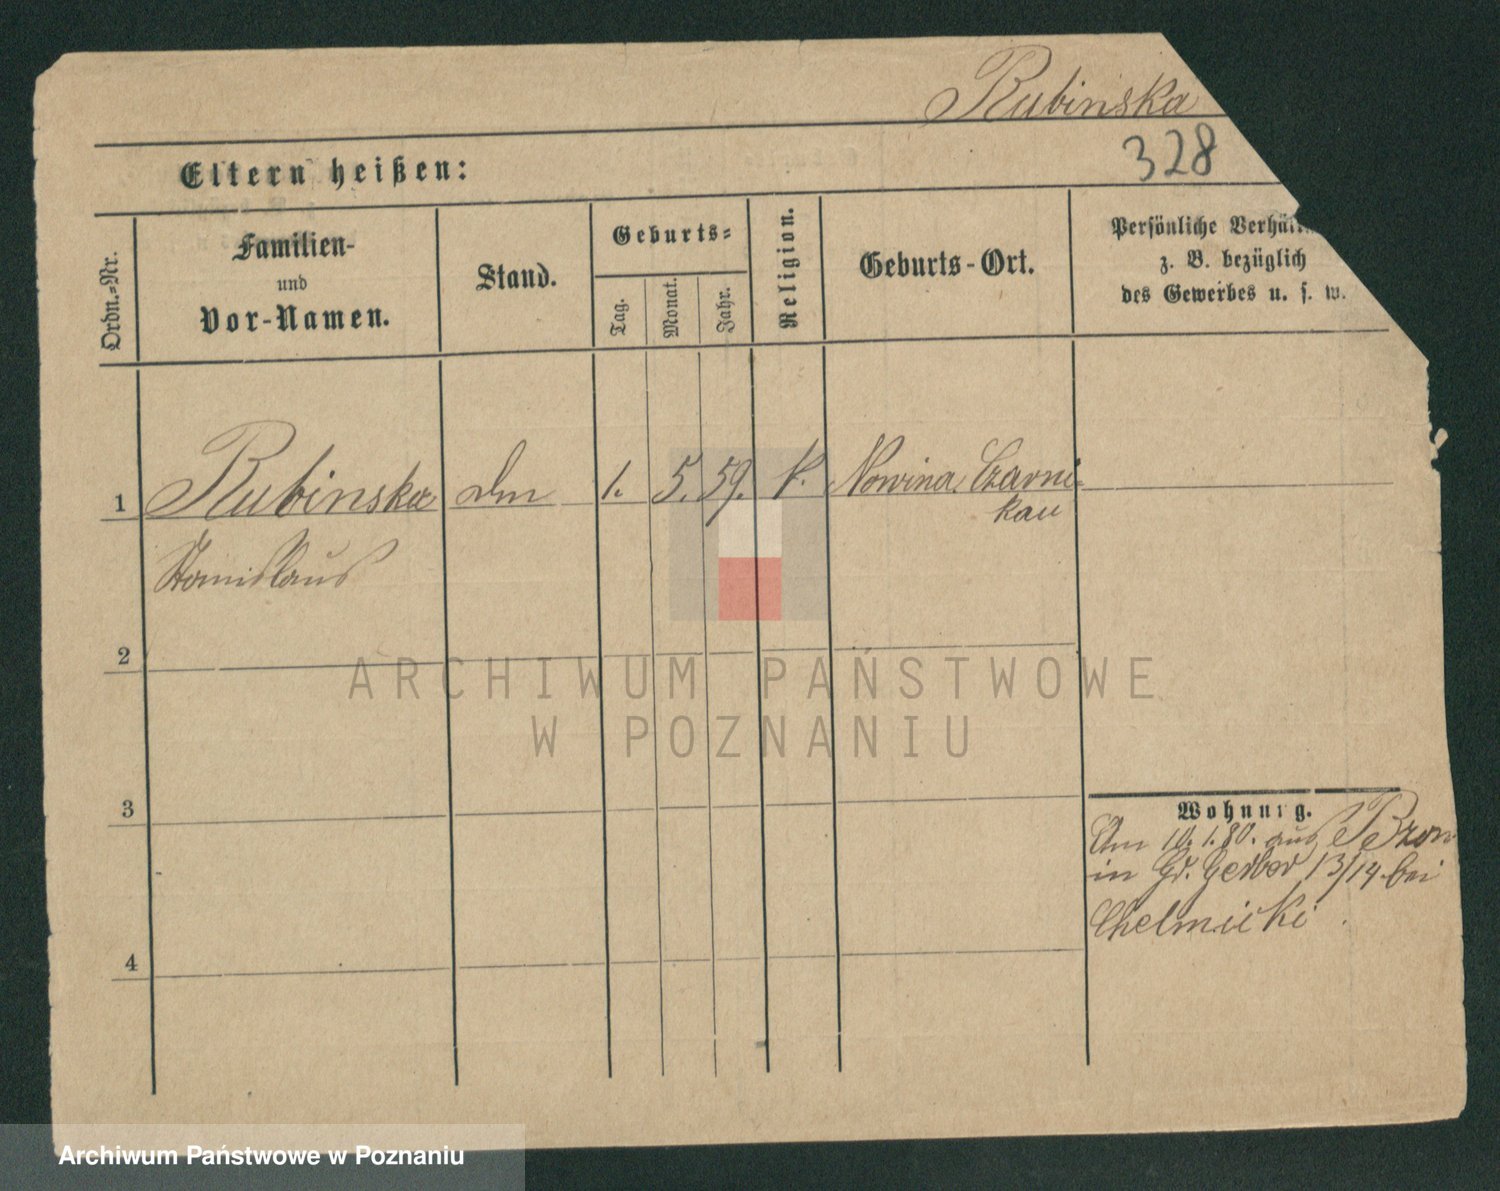 Rubinska
328
Eltern heißen:
Ordn.-Nr.
Familien-
und
Vor-Namen.
Stand.
Geburts-
Tag.
Monat.
Jahr.
Religion.
Geburts-Ort.
Persönliche Verhält
z. B. bezüglich
des Gewerbes u. s. w.
1
Rubinska
1. 5. 59. k. Nowina Czarni
kau
Stanislaus
2
ARCHIWUM PAŃSTWOWE
W POZNANIU
3
Wohnung.
Am 10. 1. 80. aus
in Gr. Gerber 13/14 bei
Chelmicki
4
Archiwum Państwowe w Poznaniu